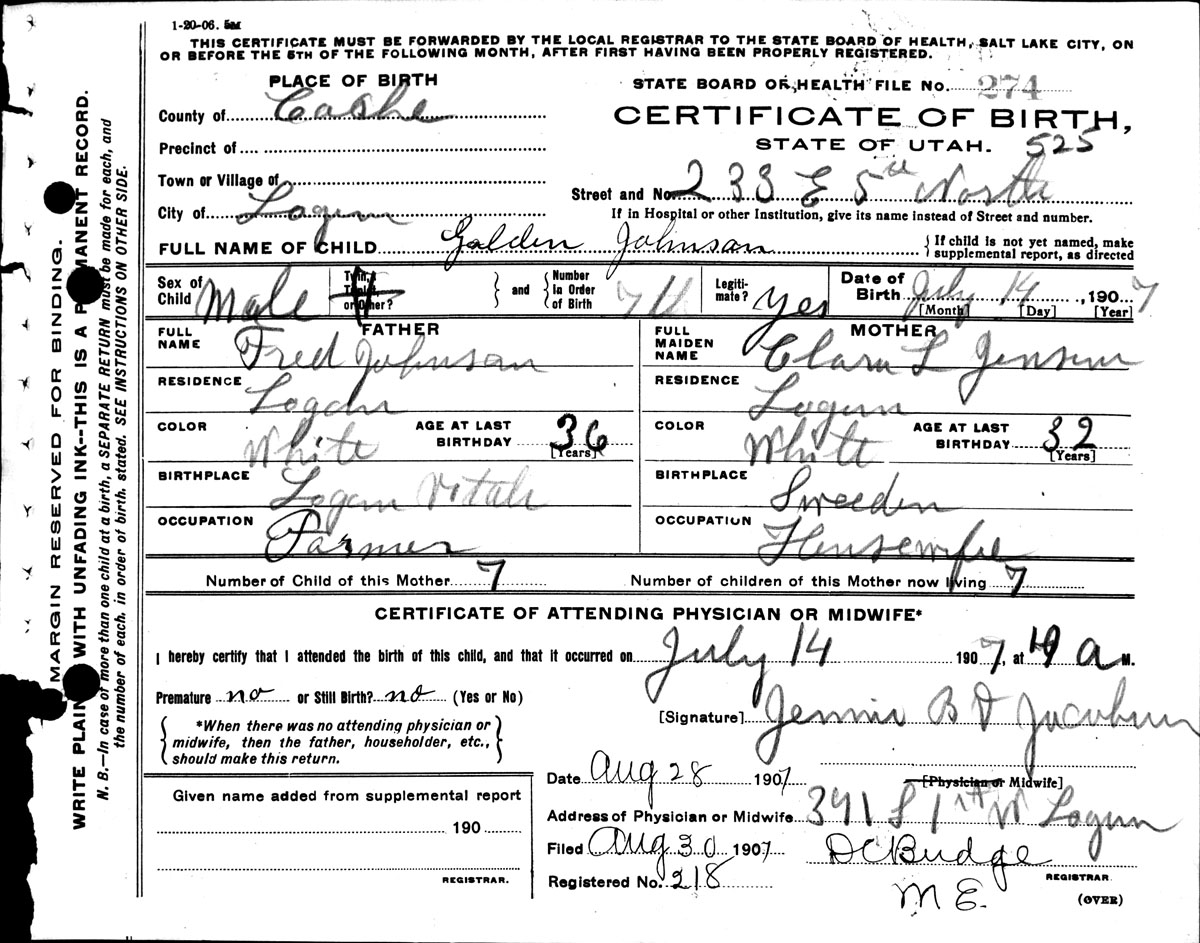 1-20-06. 5M
THIS CERTIFICATE MUST BE FORWARDED BY THE LOCAL REGISTRAR TO THE STATE BOARD OF HEALTH, SALT LAKE CITY, ON
OR BEFORE THE 5TH OF THE FOLLOWING MONTH, AFTER FIRST HAVING BEEN PROPERLY REGISTERED.
PLACE OF BIRTH
STATE BOARD OF HEALTH FILE No. 274
County of Cashe
CERTIFICATE OF BIRTH,
Precinct of
STATE OF UTAH. 525
Town or Village of
Street and No. 233 E 5th North
City of Logan
If in Hospital or other Institution, give its name instead of Street and number.
FULL NAME OF CHILD Golden Johnson
{If child is not yet named, make
supplemental report, as directed
Sex of Child Male
Twin, Triplet, or Other?
} and {
Number In Order of Birth 7
Legiti-mate? Yes
Date of Birth July 14, 1907
[Month] [Day] [Year]
FATHER
MOTHER
FULL NAME Fred Johnson
FULL MAIDEN NAME Clara L Jensen
RESIDENCE Logan
RESIDENCE Logan
COLOR White
AGE AT LAST BIRTHDAY 36 [Years]
COLOR White
AGE AT LAST BIRTHDAY 32 [Years]
BIRTHPLACE Logan Utah
BIRTHPLACE Sweeden
OCCUPATION Farmer
OCCUPATION Housewife
Number of Child of this Mother 7
Number of children of this Mother now living 7
CERTIFICATE OF ATTENDING PHYSICIAN OR MIDWIFE*
I hereby certify that I attended the birth of this child, and that it occurred on July 14 1907, at a M.
Premature no or Still Birth? no (Yes or No)
[Signature] Jennie B Jacobson
{*When there was no attending physician or
midwife, then the father, householder, etc.,
should make this return.}
Date Aug 28 1907
[Physician or Midwife]
Given name added from supplemental report
Address of Physician or Midwife 391 S 1st W Logan
190
Filed Aug 30 1907
D C Budge
REGISTRAR.
REGISTRAR.
Registered No. 218
M E.
(OVER)
MARGIN RESERVED FOR BINDING.
WRITE PLAINLY WITH UNFADING INK--THIS IS A PERMANENT RECORD.
N. B.--In case of more than one child at a birth, a SEPARATE RETURN must be made for each, and
the number of each, in order of birth, stated. SEE INSTRUCTIONS ON OTHER SIDE.